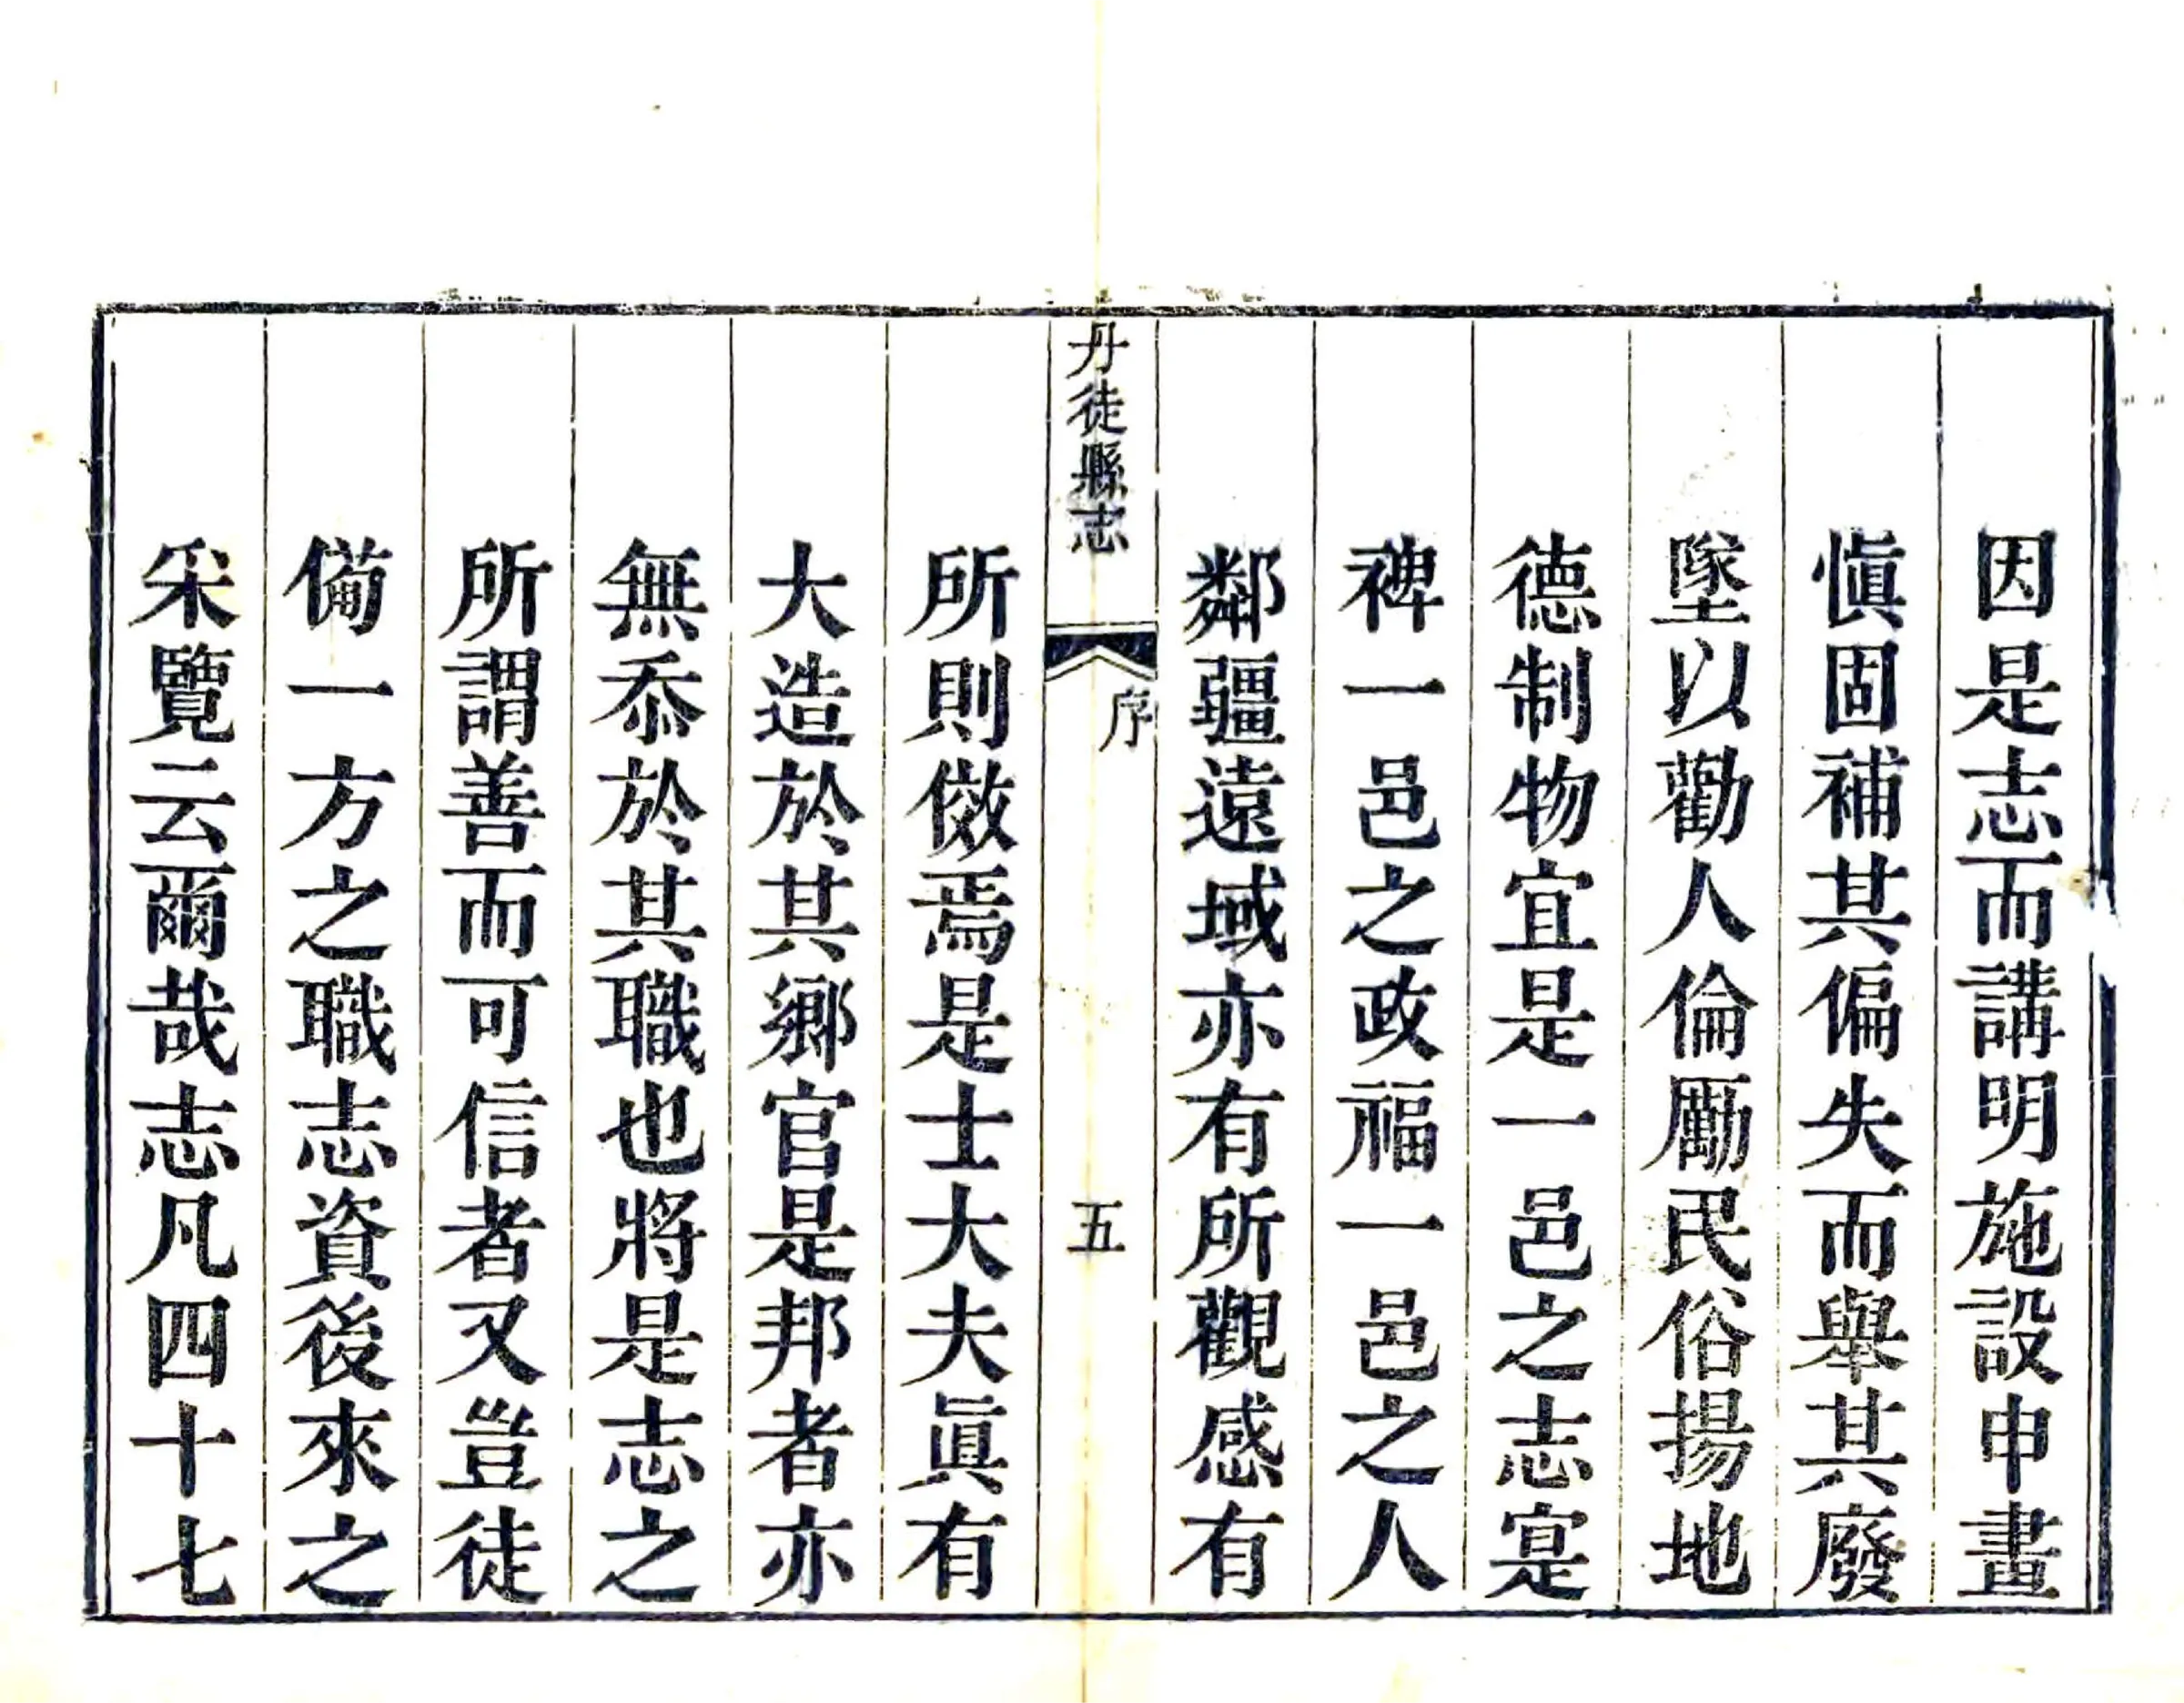 因是志而講明施設申畫
慎固補其偏失而舉其廢
墜以勸人倫勵民俗揚地
德制物宜是一邑之志寔
裨一邑之政福一邑之人
鄰疆遠域亦有所觀感有
丹徒縣志
序
五
所則傚焉是士大夫眞有
大造於其鄉官是邦者亦
無忝於其職也將是志之
所謂善而可信者又豈徒
備一方之職志資後來之
采覽云爾哉志凡四十七